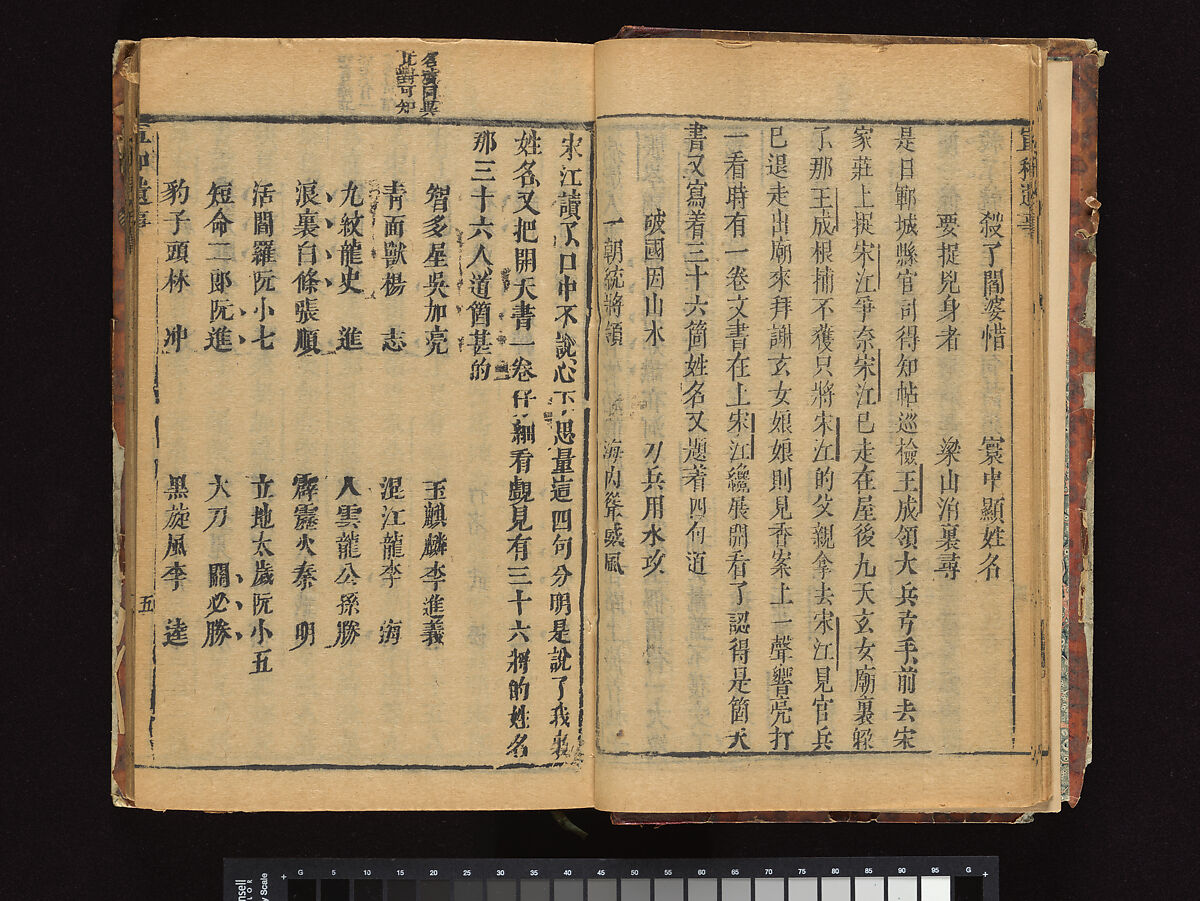 殺了閻婆惜　寰中顯姓名
要捉兇身者　梁山泊裏尋
是日鄆城縣官司得知帖巡檢王成領大兵弓手前去宋
家莊上捉宋江爭奈宋江已走在屋後九天玄女廟裏躱
了那王成根捕不獲只將宋江的父親拿去宋江見官兵
已退走出廟來拜謝玄女娘娘則見香案上一聲響亮打
一看時有一卷文書在上宋江纔展開看了認得是箇天
書又寫着三十六箇姓名又題着四句道
破國因山木　刀兵用水攻
一朝統將領　海內聳威風
宋江讀了口中不說心下思量這四句分明是說了我裏
姓名又把開天書一卷仔細看覷見有三十六將的姓名
那三十六人道箇甚的
智多星吳加亮　玉麒麟李進義
青面獸楊志　混江龍李海
九紋龍史進　入雲龍公孫勝
浪裏白條張順　霹靂火秦明
活閻羅阮小七　立地太歲阮小五
短命二郎阮進　大刀關必勝
豹子頭林冲　黑旋風李逵
宣和遺事
五
比對可知
G 5 10 15 20 25 30 35 40 45 50 55 60 65 70 75 80 85 90 95 G